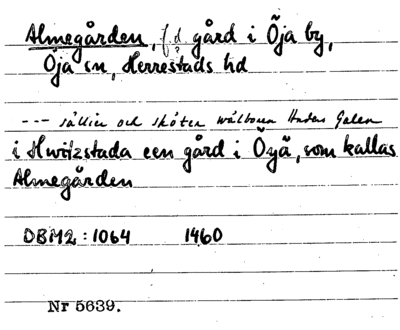 Almegården, f.d. gård i Öja by,
Öja sn, Herrestads hd
--- sällier och sköter wälboren
i Hwitzstada een gård i Öyä, som kallas
Almegården
DBM2:1064 1460
Nr 5639.